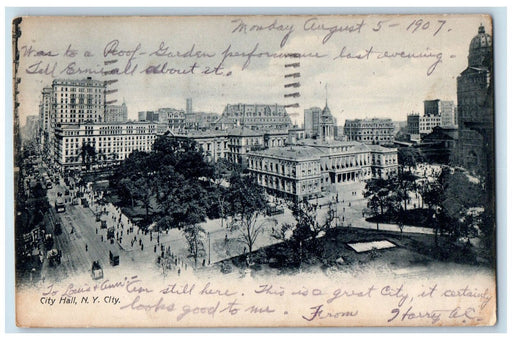 Monday August 5 - 1907
Was to a Roof-Garden performance last evening.
Tell all about it.
City Hall, N. Y. City.
To Louis + Ann still here. This is a great City, it certainly
looks good to me. From Harry A.C.